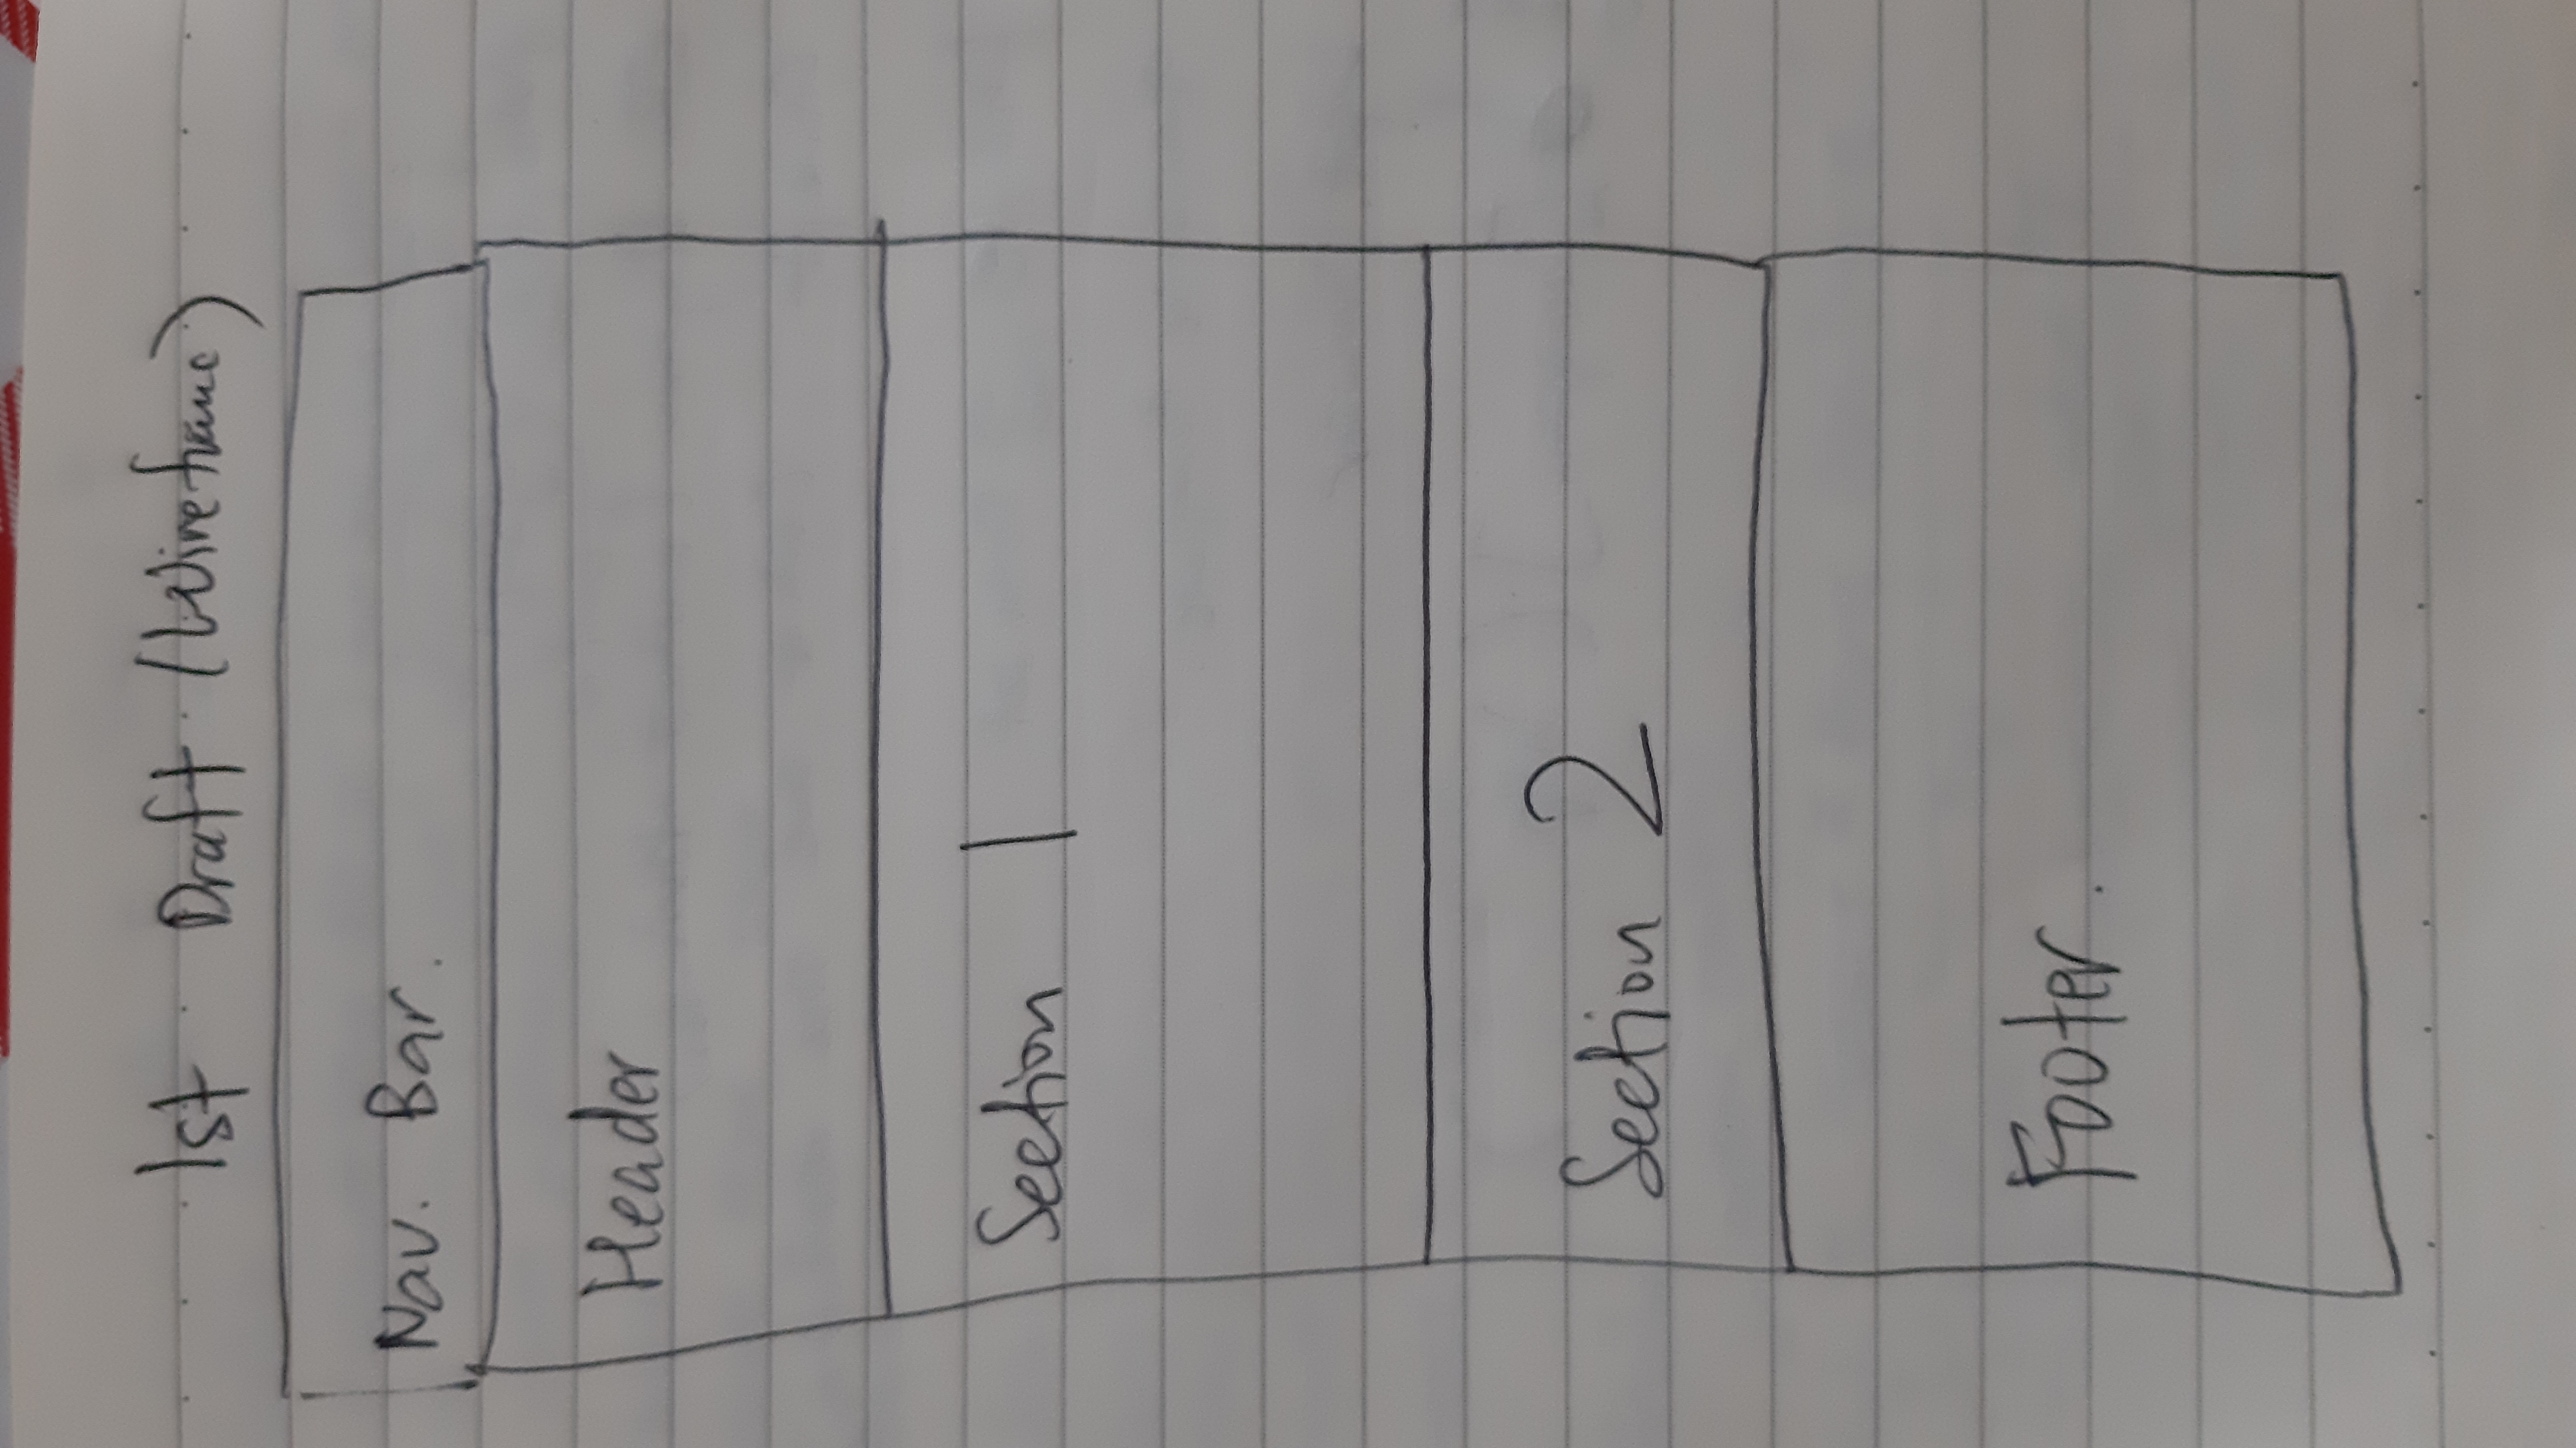 1st Draft (Wireframe)
Nav. Bar.
Header
Section 1
Section 2
Footer.